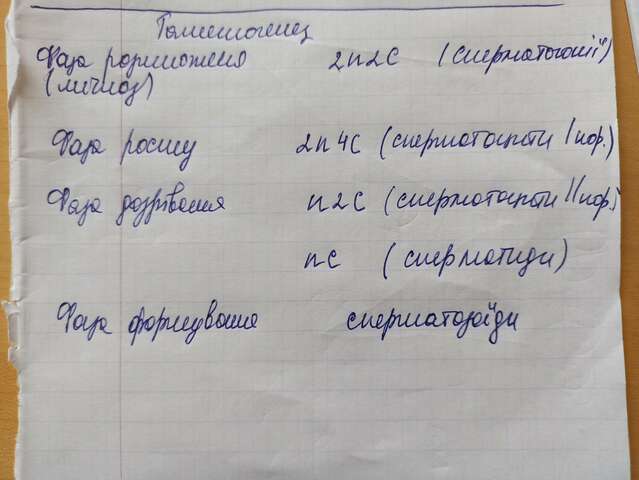 Гаметогенез
Фаза розмноження 2n2c (сперматогонії)
(мітоз)
Фаза росту 2n4c (сперматоцити I пор.)
Фаза дозрівання n2c (сперматоцити II пор.)
nc (сперматиди)
Фаза формування сперматозоїди